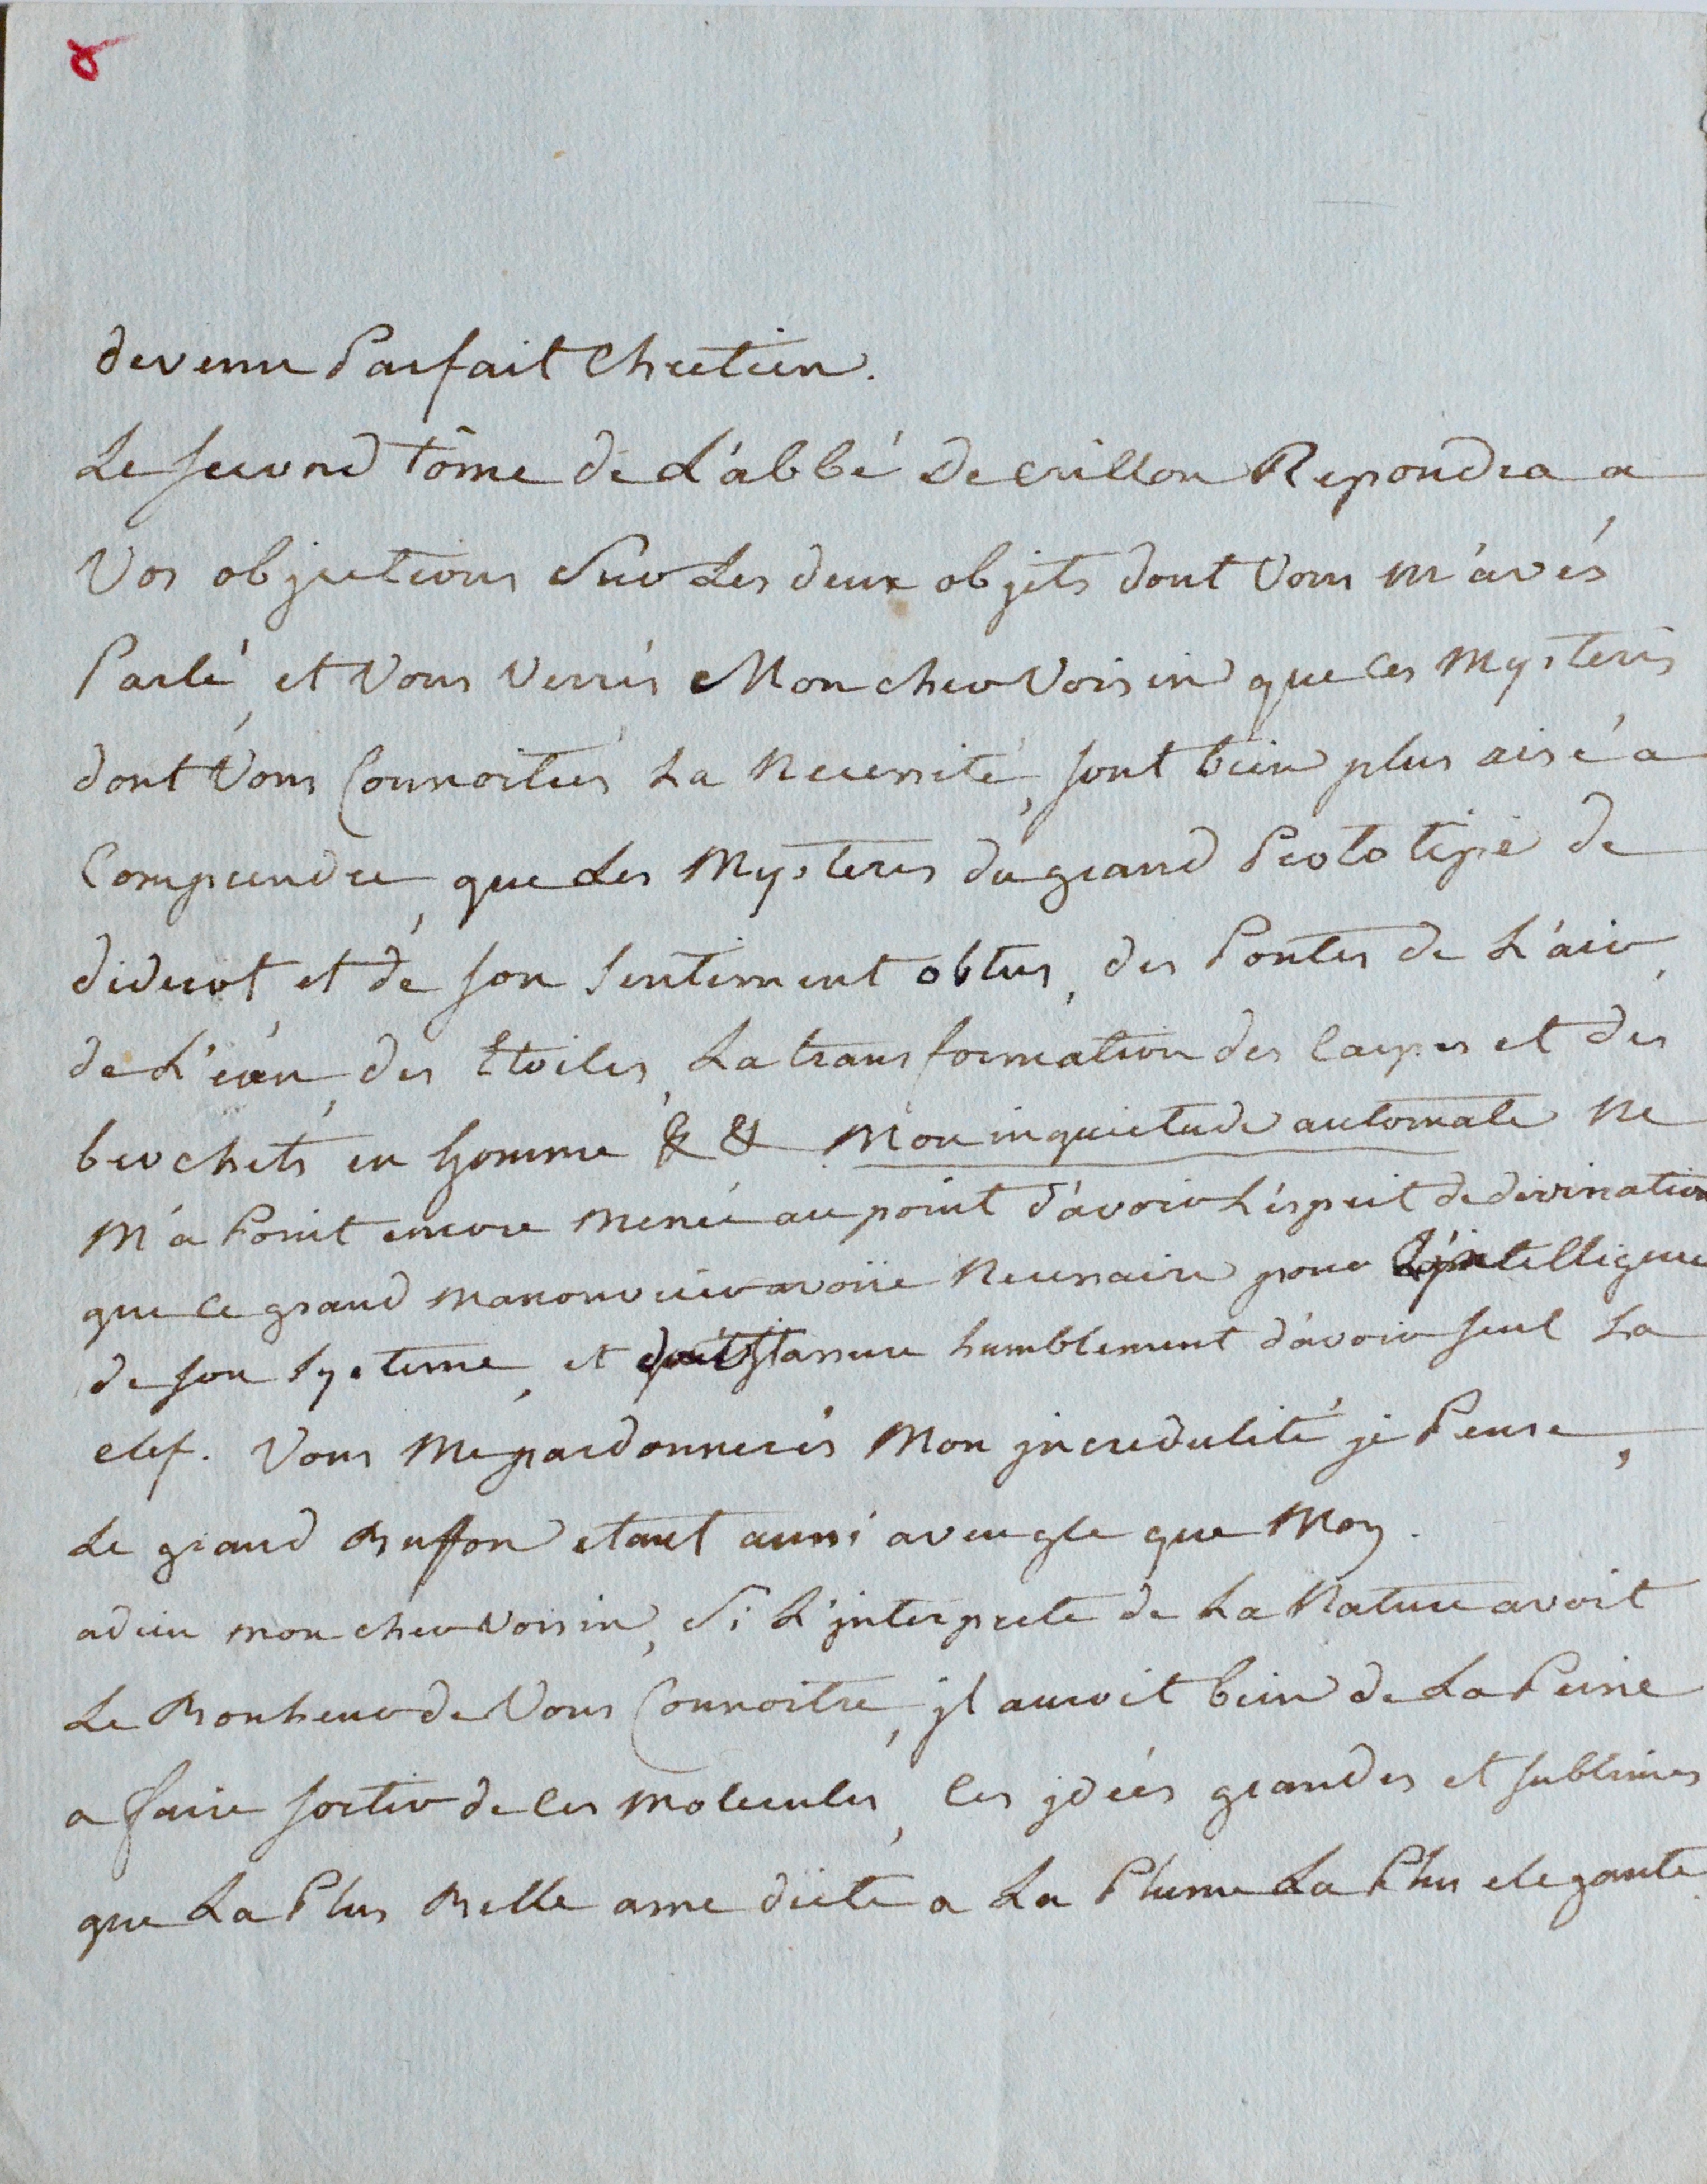 8
devenu Parfait Chretien.
Le second tôme de L'abbé De crillon Repondra a
Vos objections Sur Les deux objets dont Vous m'avés
Parlé, et Vous Verrés Mon cher Voisin que ces Mysteres
dont Vous Connoitrés La Necessité, sont bien plus aisé a
Comprendre, que Les Mysteres du grand Prototipe de
diderot et de son sentiment obtus, des Pontes de L'air,
de L'eau, des Etoiles, La transformation des Carpes et des
brochets en homme & & Mon inquietude automate Ne
M'a Point encore menée au point d'avoir L'esprit de divination
que ce grand manouvrier avoüe Necessaire pour L'intelligence
de son systeme, et qu'il assure humblement d'avoir seul La
clef. Vous Me pardonnerés Mon jncredulité je Pense,
Le grand Buffon etant aussi aveugle que Moy.
adieu mon cher Voisin, Si L'jnterprete de La Nature avoit
Le Bonheur de Vous Connoitre, jl auroit bien de La Peine
a faire sortir de ces molecules, ces jdées grandes et sublimes
que La Plus Belle ame dicte a La Plume La Plus elegante